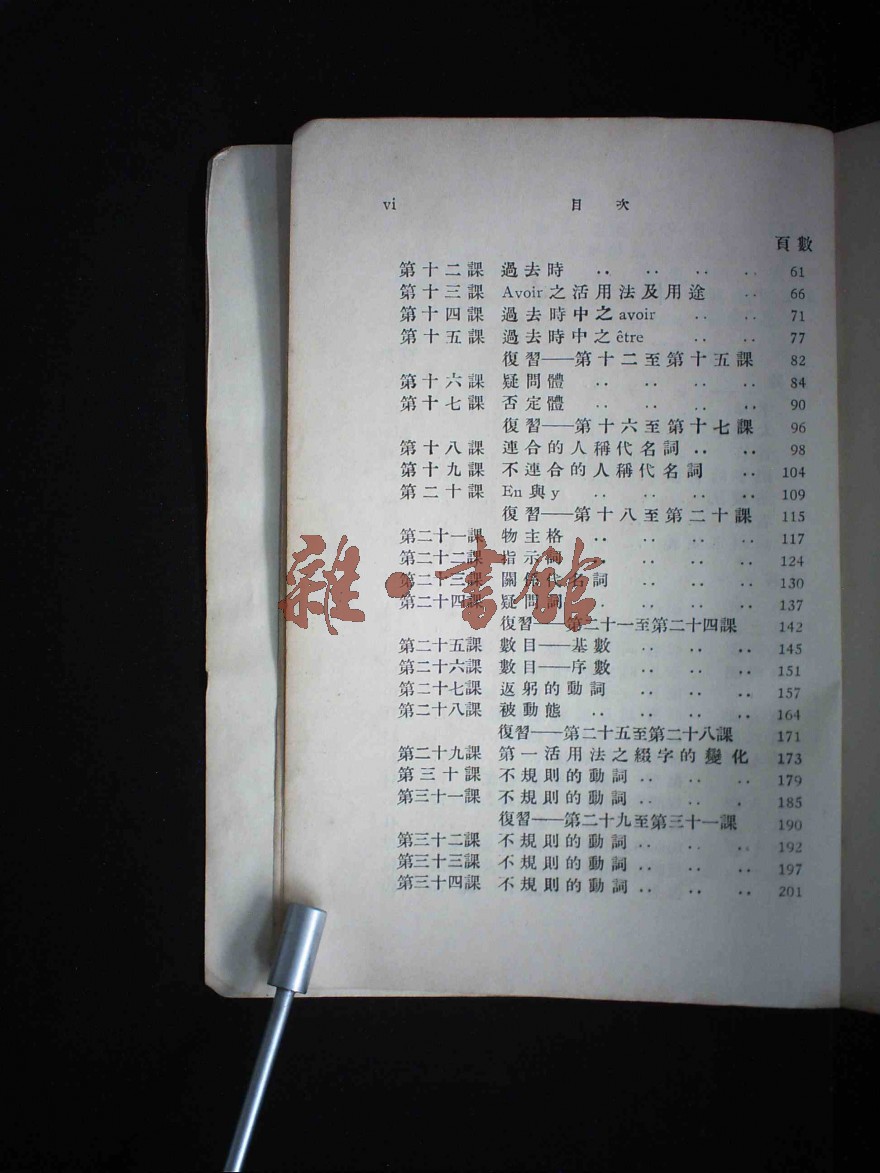 vi 目次
頁數
第十二課 過去時 .. .. .. .. 61
第十三課 Avoir之活用法及用途 .. 66
第十四課 過去時中之avoir .. .. 71
第十五課 過去時中之être .. .. 77
復習——第十二至第十五課 82
第十六課 疑問體 .. .. .. .. 84
第十七課 否定體 .. .. .. .. 90
復習——第十六至第十七課 96
第十八課 連合的人稱代名詞 .. .. 98
第十九課 不連合的人稱代名詞 .. 104
第二十課 En與y .. .. .. .. 109
復習——第十八至第二十課 115
第二十一課 物主格 .. .. .. .. 117
第二十二課 指示詞 .. .. .. 124
第二十三課 關係代名詞 .. .. .. 130
第二十四課 疑問詞 .. .. .. .. 137
復習——第二十一至第二十四課 142
第二十五課 數目——基數 .. .. .. 145
第二十六課 數目——序數 .. .. .. 151
第二十七課 返躬的動詞 .. .. .. 157
第二十八課 被動態 .. .. .. .. 164
復習——第二十五至第二十八課 171
第二十九課 第一活用法之綴字的變化 173
第三十課 不規則的動詞 .. .. .. 179
第三十一課 不規則的動詞 .. .. . 185
復習——第二十九至第三十一課 190
第三十二課 不規則的動詞 .. .. .. 192
第三十三課 不規則的動詞 .. .. .. 197
第三十四課 不規則的動詞 .. .. .. 201
雜·書館